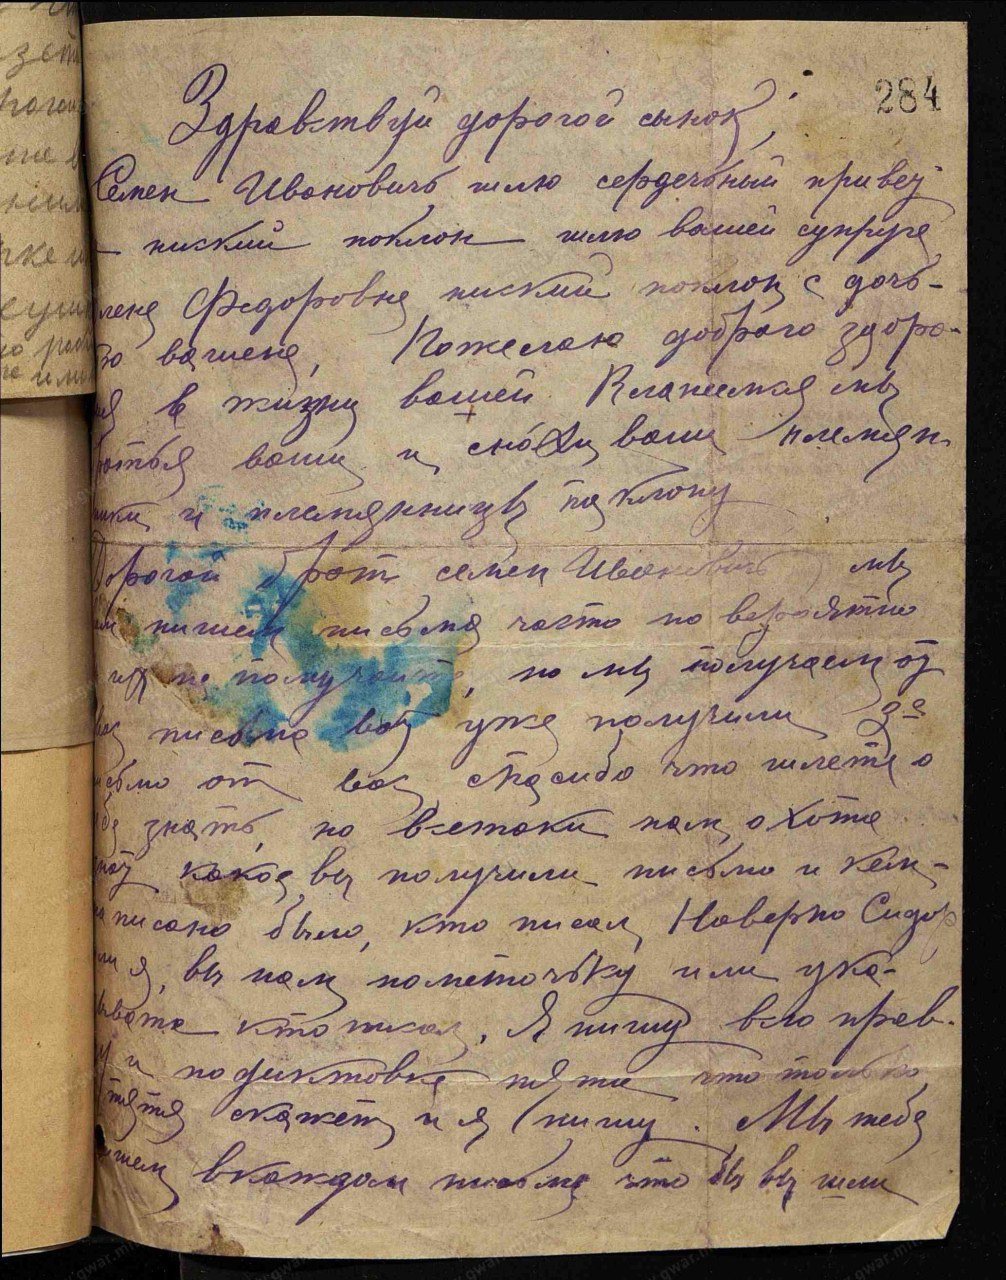 284
Здравствуй дорогой сынок,
Семен Ивановичь шлю сердечьный привет
ниский поклон шлю вашей супруге
лене Федоровне ниский поклон с дочь-
ю вашене, Пожелаю доброго здоро-
вя в жизни вашей Кланеимся мы
братья ваши и снохи ваши племян
ники и племянницы па клону
Дорогой брат семен Иванович мы
вам пишем письма часто но вероятно
их не получаите, но мы получаем от
вас письма вот уже получили 3е
письмо от вас спасибо что шлете о
себе знать, но всетаки нам охота
знат какое вы получили письмо и кем-
написано было, кто писал, Наверно Сидор
или я, вы нам пометочьку или ука-
зывата кто писал, Я пишу всю прав-
ду и подиктовке тяти что только
тятя скажет и я пишу. Мы тебе
пишем вкаждом письме что бы вы шли